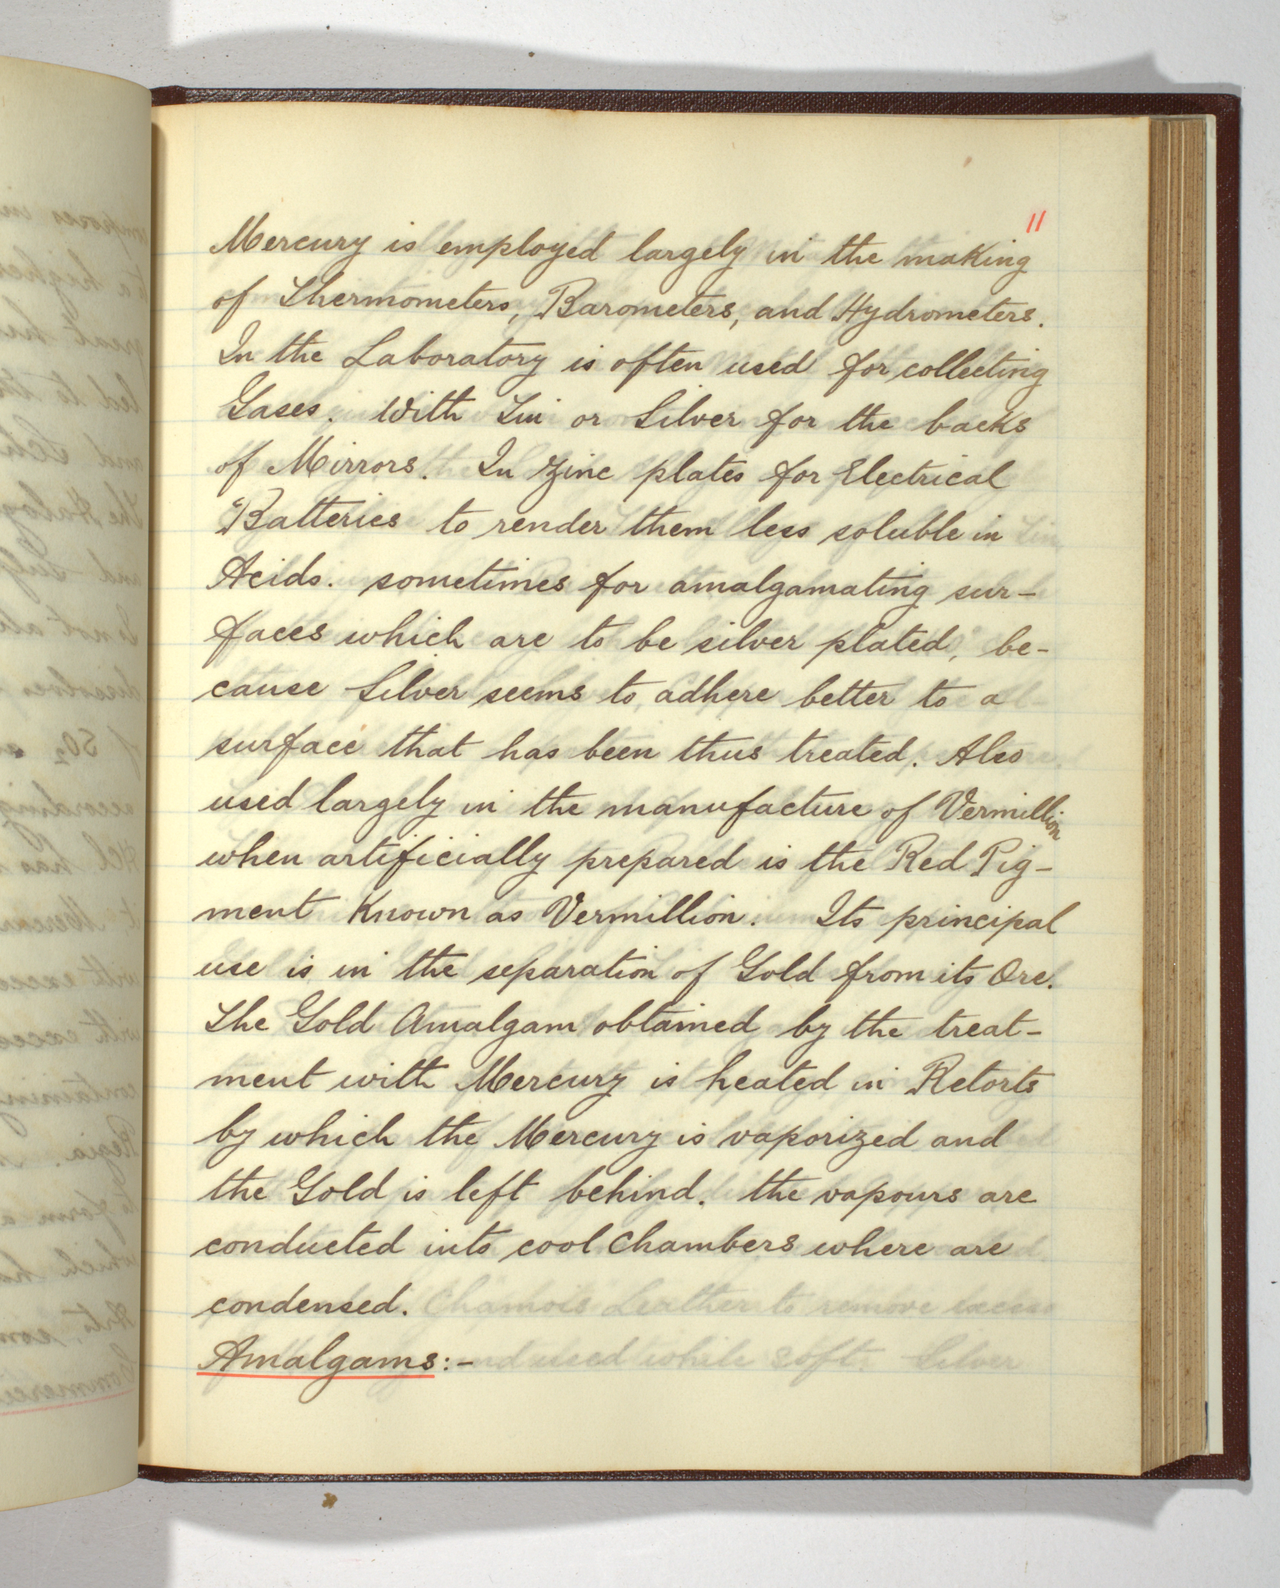 11
Mercury is employed largely in the making
of Thermometers, Barometers, and Hydrometers.
In the Laboratory is often used for collecting
Gases. With Tin or Silver for the backs
of Mirrors. In Zinc plates for Electrical
Batteries to render them less soluble in
Acids. sometimes for amalgamating sur-
faces which are to be silver plated, be-
cause Silver seems to adhere better to a
surface that has been thus treated. Also
used largely in the manufacture of Vermillion
when artificially prepared is the Red Pig-
ment Known as Vermillion. Its principal
use is in the separation of Gold from its Ore.
The Gold Amalgam obtained by the treat-
ment with Mercury is heated in Retorts
by which the Mercury is vaporized and
the Gold is left behind. the vapours are
conducted into cool Chambers where are
condensed.
Amalgams:-